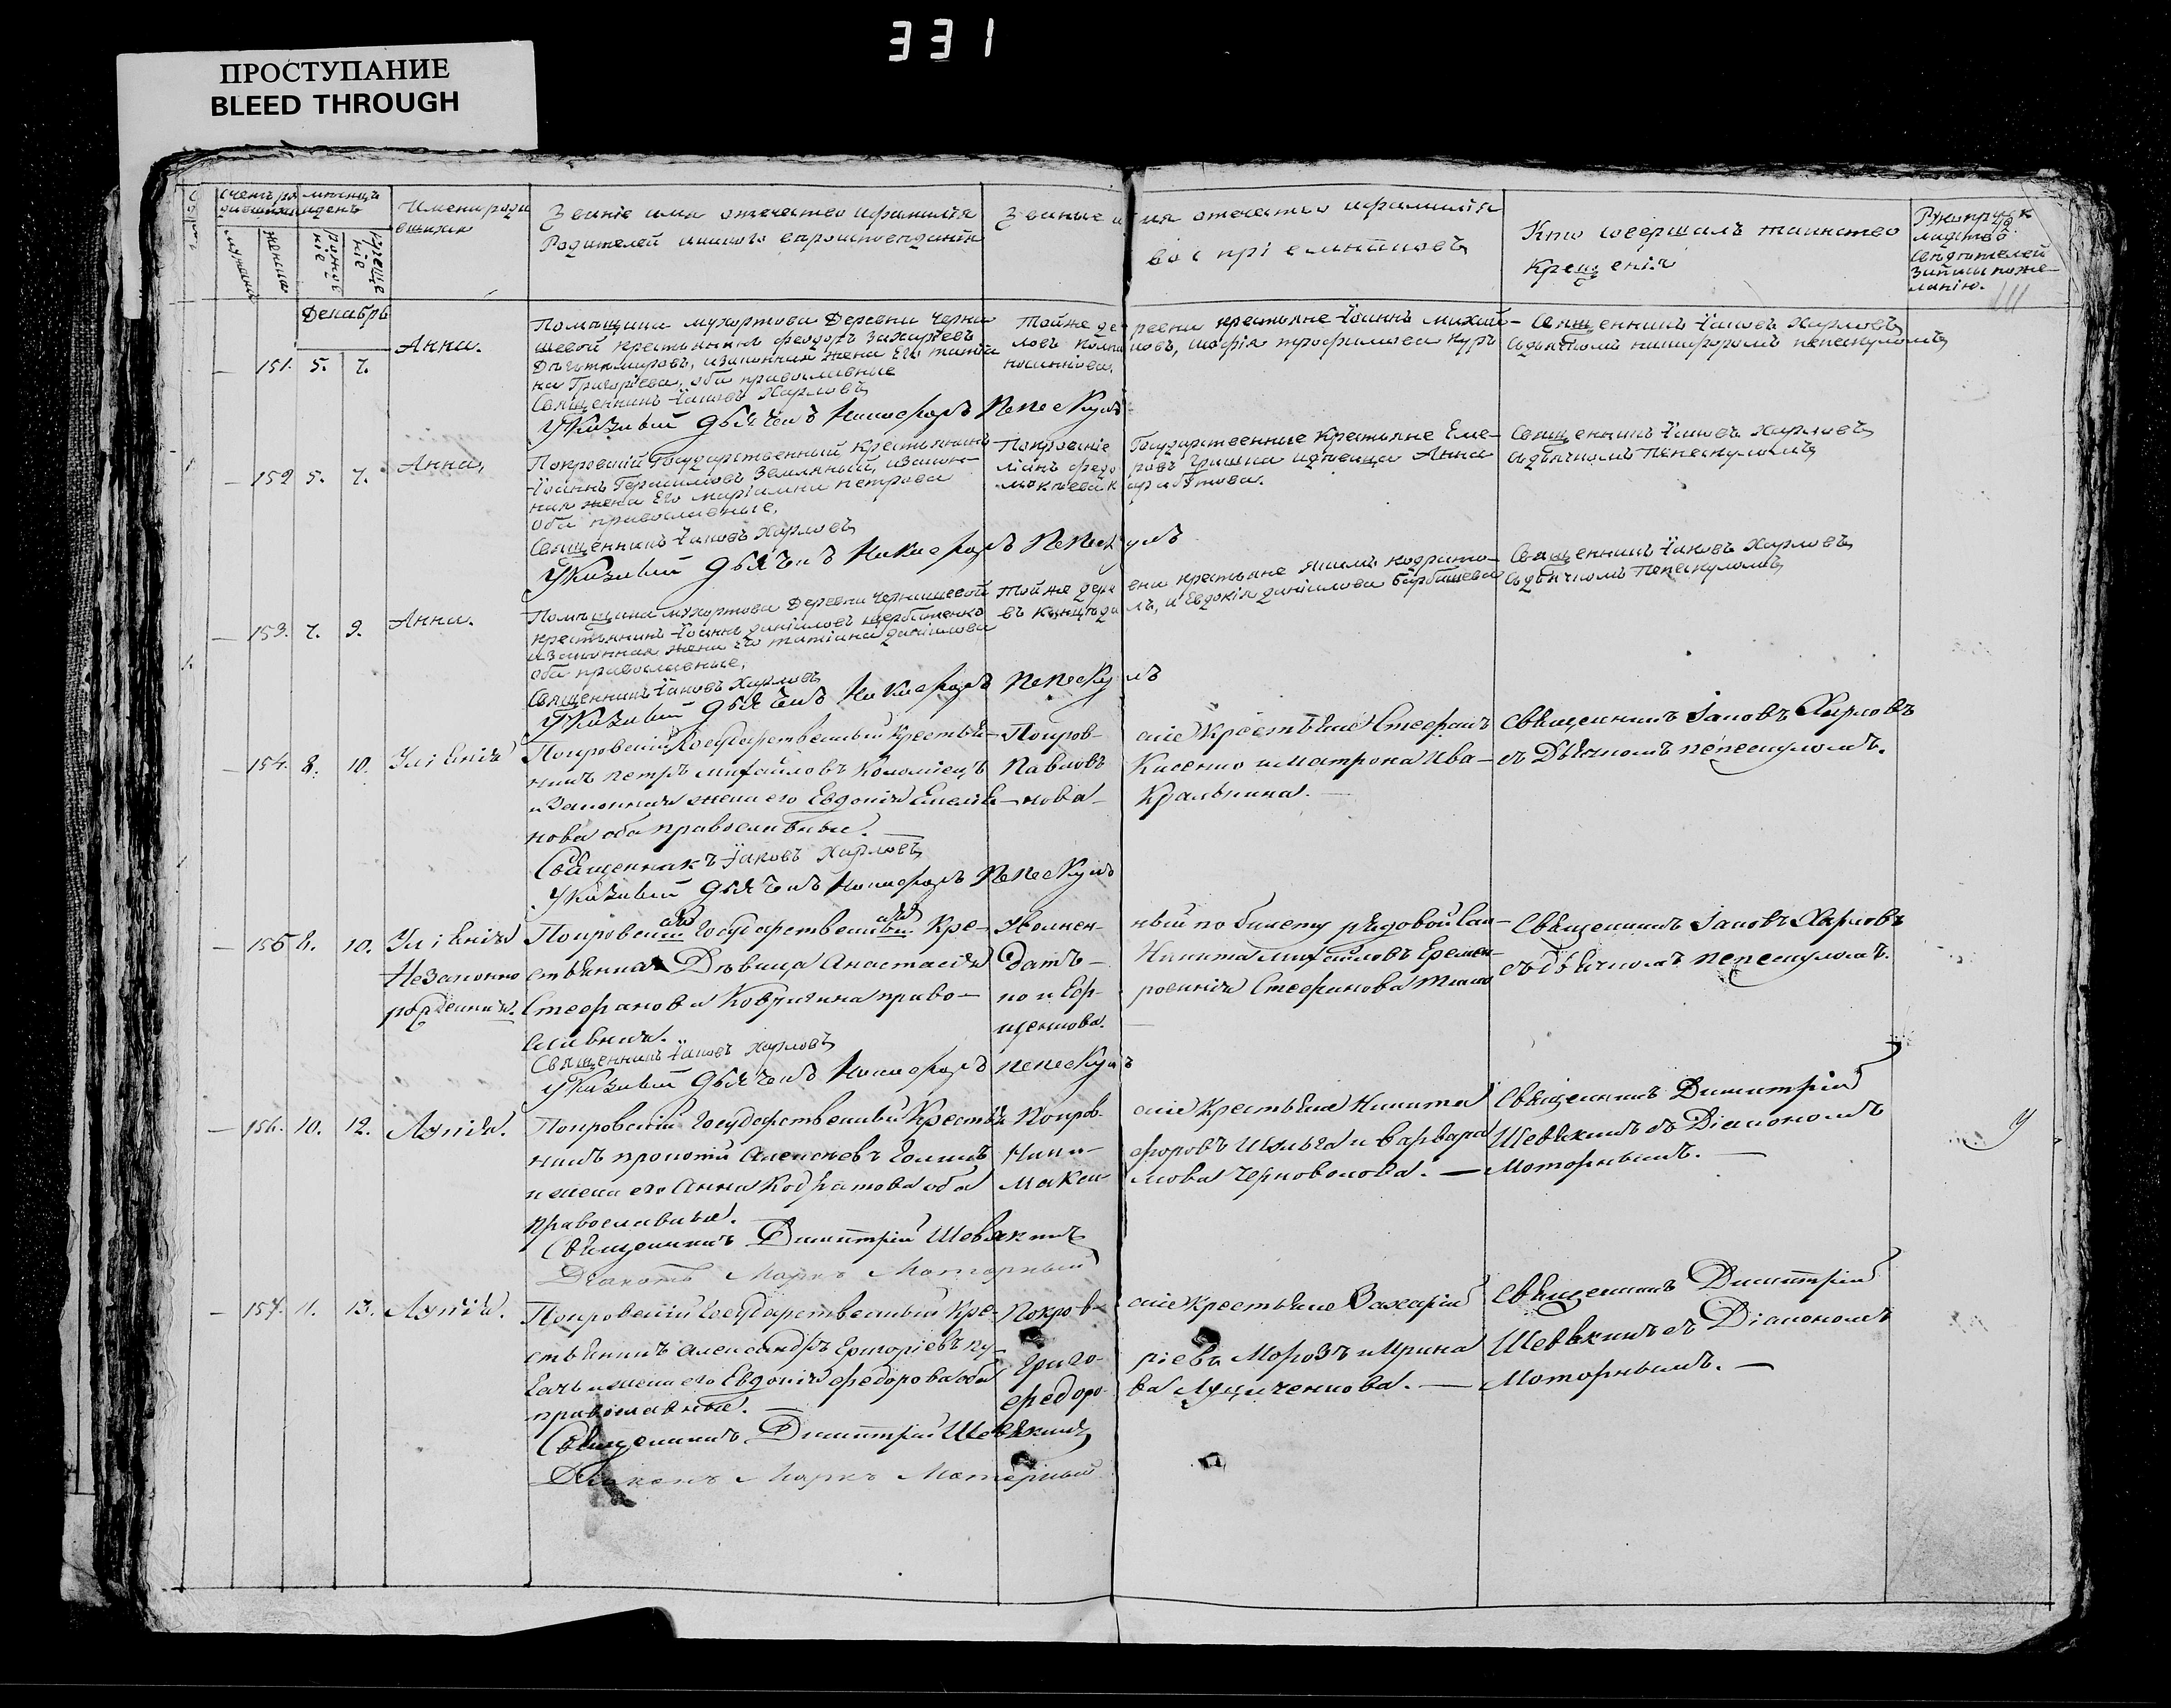 331
ПРОСТУПАНИЕ
BLEED THROUGH
Счетъ ро
дившихся
мужеска
женска
месяцъ
и день
Рожде
ніе
Креще
ніе
Имена роди
вшихся
Званіе имя отечество ифамилія
Родителей икакого вероисповеданія
Званіе имя отечество ифамилія
воспріемниковъ
Кто совершалъ таинство
Крещенія
Рукоприк
ладство
свидетелей
записи поже-
ланію.
Декабрь
151. 5. 7. Анна.
Помещика мухортова деревни Черни
шевой крестьянинъ феодоръ Захаріевъ
изаконная жена Его татіа
на Григоріева, оба православные
Священникъ Іаковъ Харловъ
Указный дьячекъ Никифоръ Пепескулъ
Тойже деревни крестьяне Іоаннъ михай-
ловъ
Священникъ Іаковъ Харловъ
Содьячкомъ никифоромъ пепескуломъ
152 5. 7. Анна,
Покровскій Государственный Крестьянинъ
Іоаннъ Герасимовъ Земляный, изакон-
ная жена Его маріамна петрова
оба православные,
Священникъ Іаковъ Харловъ
Указный дьячекъ Никифоръ Пепескулъ
Покровскіе Государственные Крестьяне Еме-
ліанъ федоровъ Гришка идевица Анна
Священникъ Іаковъ Харловъ
Содьячкомъ Пепескуломъ
153. 7. 9. Анна.
Помещика мухортова деревни Чернишевой
крестьянинъ Іоаннъ даніиловъ щербаненко
изаконная жена Его татіана даніилова
оба православные,
Священникъ Іаковъ Харловъ
Указный дьячекъ Никифоръ Пепескулъ
Тойже деревни крестьяне
и Евдокія даніилова
Священникъ Іаковъ Харловъ
Содьячкомъ Пепескуломъ
154. 8. 10. Уліанія
Покровскій Государственный Крестья-
нинъ петръ михайловъ Коломіецъ
изаконная жена его Евдокія Емелья-
нова оба православные.
Священникъ Іаковъ Харловъ
Указный дьячекъ Никифоръ Пепескулъ
Покровскіе Крестьяне Стефанъ
Павловъ Кисенко иматрона Ива-
нова Кральнина.
Священникъ Іаковъ Харловъ
съ Дьячкомъ пепескуломъ.
155 8. 10. Уліанія
Незаконно
рожденная.
Покровская Государственная Кре-
стьянка Девица Анастасія
Стефанова Ковригина право-
славная.
Священникъ Іаковъ Харловъ
Указный дьячекъ Никифоръ Пепескулъ
Уволненный по билету рядовой сол-
датъ Никита михайловъ Еремен-
ко и Евфросинія Стефанова
Священникъ Іаковъ Харловъ
съ дьячкомъ пепескуломъ.
156. 10. 12. Лукія.
Покровскій Государственный Крестья
нинъ прокопій Алексіевъ
и жена его Анна Кодратова оба
православные.
Священникъ Димитрій Шевякинъ
Діаконъ Маркъ Моторный
Покровскіе Крестьяне Никита
Никифоровъ Шкляга и варвара
Максимова Черноволова.
Священникъ Димитрій
Шевякинъ съ Діакономъ
Моторнымъ.
157. 11. 13. Лукія.
Покровскій Государственный Кре-
стьянинъ Александръ Григоріевъ Ку-
гачъ и жена его Евдокія федорова оба
православные.
Священникъ Димитрій Шевякинъ
Діаконъ Маркъ Моторный
Покровскіе крестьяне Захарій
Григоріевъ Морозъ и Ирина
федорова Луцыченкова.
Священникъ Димитрій
Шевякинъ съ Діакономъ
Моторнымъ.